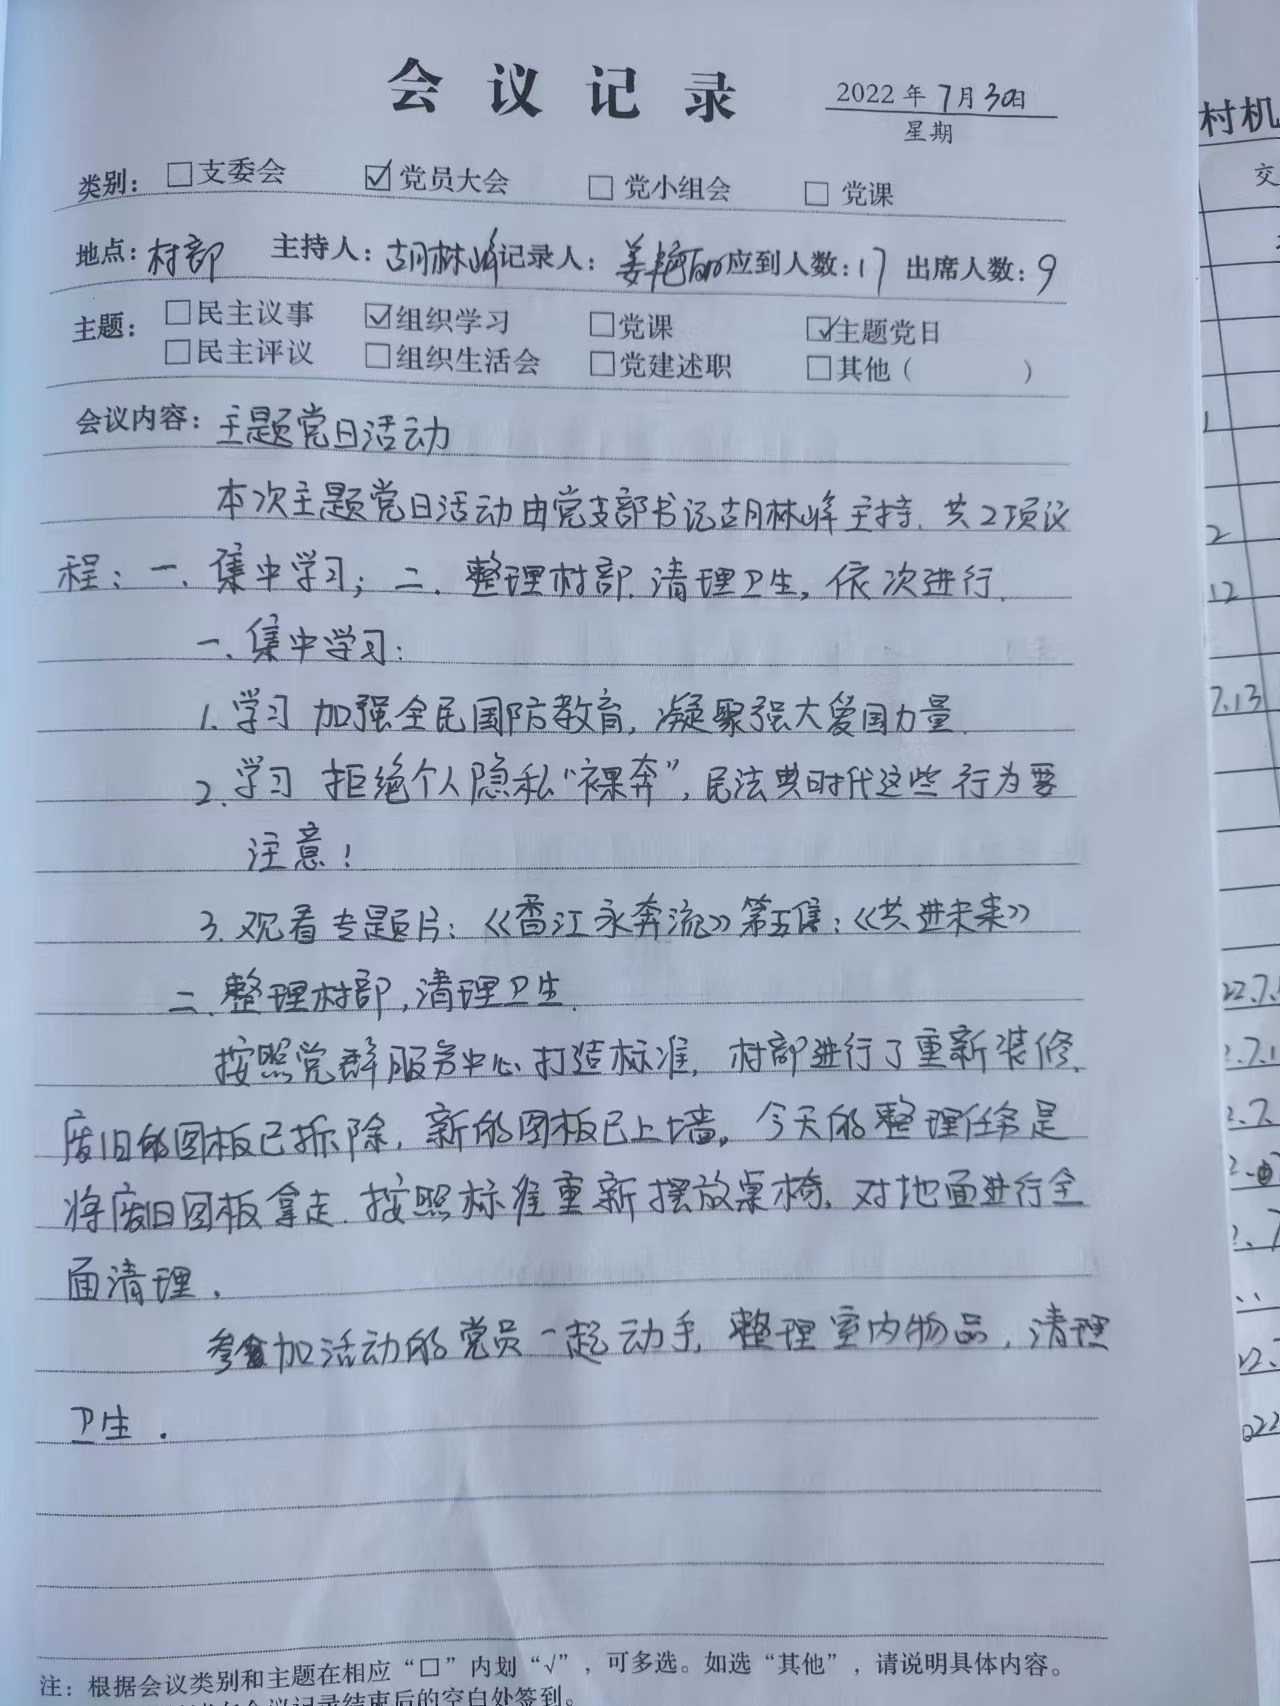 会议记录
2022年7月30日
星期
类别：☐支委会 ☑党员大会 ☐党小组会 ☐党课
地点：村部 主持人：胡林峰 记录人：姜艳 应到人数：17 出席人数：9
主题：☐民主议事 ☑组织学习 ☐党课 ☑主题党日
☐民主评议 ☐组织生活会 ☐党建述职 ☐其他（ ）
会议内容：主题党日活动
本次主题党日活动由党支部书记胡林峰主持，共2项议
程：一、集中学习；二、整理村部、清理卫生，依次进行．
一、集中学习：
1. 学习 加强全民国防教育，凝聚强大爱国力量．
2. 学习 拒绝个人隐私“裸奔”，民法典时代这些行为要
注意！
3. 观看专题片：《香江永奔流》第五集：《共进未来》
二、整理村部，清理卫生．
按照党群服务中心打造标准，村部进行了重新装修、
废旧的图板已拆除，新的图板已上墙。今天的整理任务是
将废旧图板拿走、按照标准重新摆放桌椅、对地面进行全
面清理．
参加活动的党员一起动手，整理室内物品，清理
卫生．
注：根据会议类别和主题在相应“☐”内划“√”，可多选。如选“其他”，请说明具体内容。
会议记录结束后的空白处签到。
村机
交
1
2
12
7.13
22.7.
2.7.1
2.7.
2.7
22.7
022